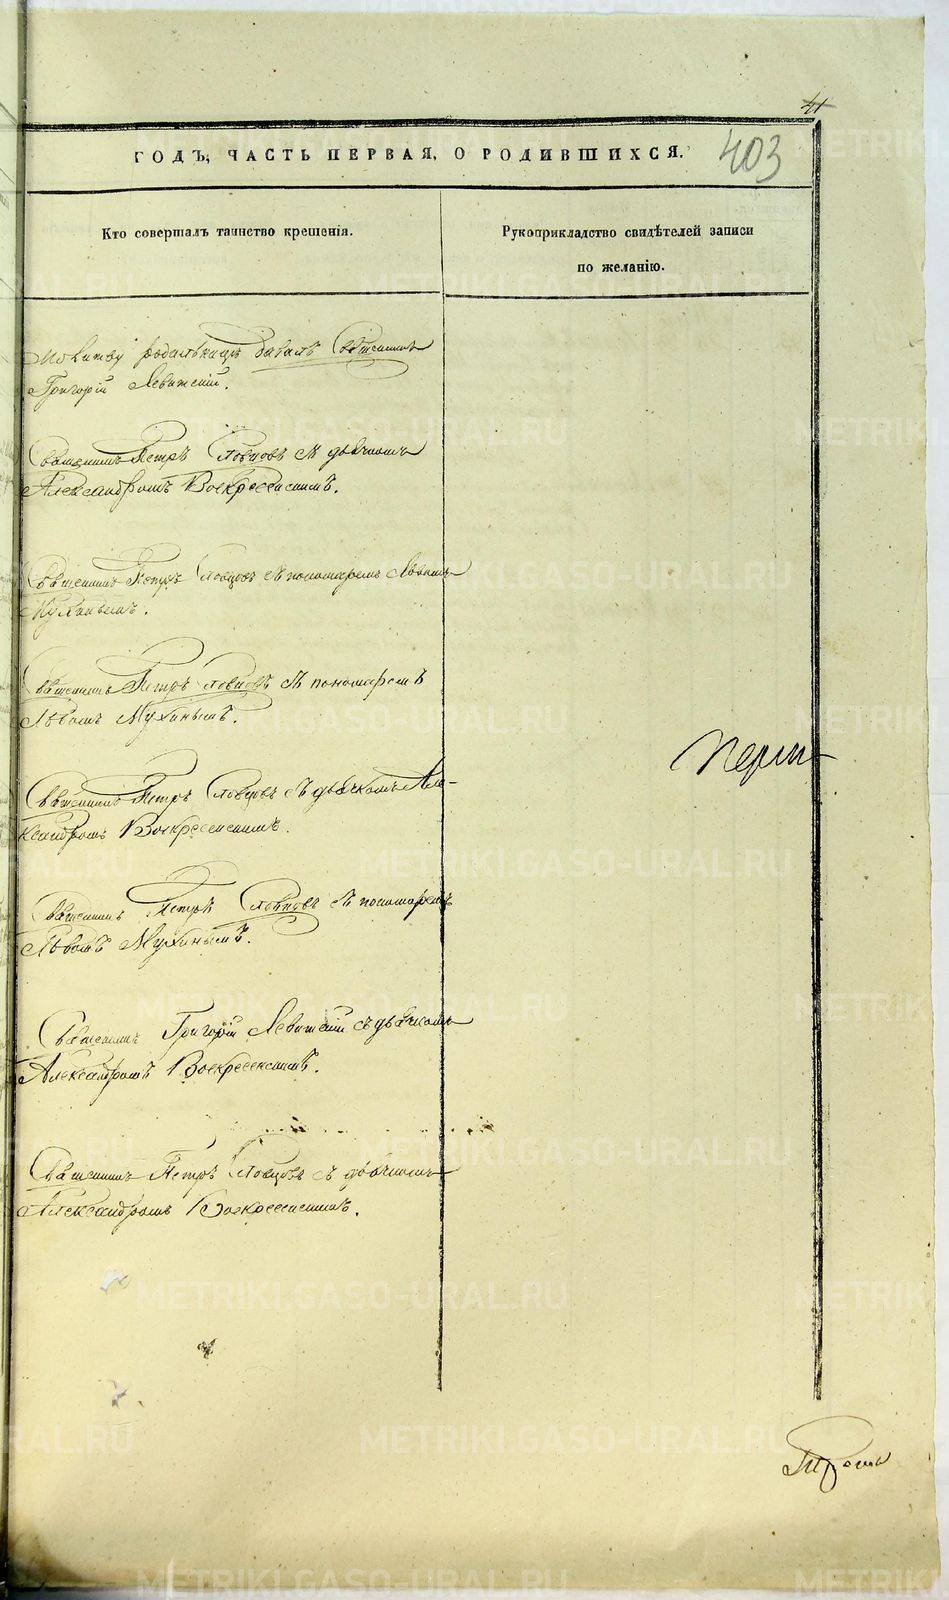 41
ГОДЪ, ЧАСТЬ ПЕРВАЯ, О РОДИВШИХСЯ.
403
Кто совершалъ таинство крещенія.
Рукоприкладство свидѣтелей записи
по желанію.
Молитву родильницѣ давалъ Священникъ
Григорій Левитскій.
Священникъ Петръ Словцовъ съ дьячкомъ
Александромъ Воскресенскимъ.
Священникъ Петръ Словцовъ съ пономаремъ Львомъ
Мухинымъ.
Священникъ Петръ Словцовъ съ пономаремъ
Львомъ Мухинымъ.
Священникъ Петръ Словцовъ съ дьячкомъ Але-
ксандромъ Воскресенскимъ.
Священникъ Петръ Словцовъ съ пономаремъ
Львомъ Мухинымъ.
Священникъ Григорій Левитскій съ дьячкомъ
Александромъ Воскресенскимъ.
Священникъ Петръ Словцовъ съ дьячкомъ
Александромъ Воскресенскимъ.
METRIKI.GASO-URAL.RU